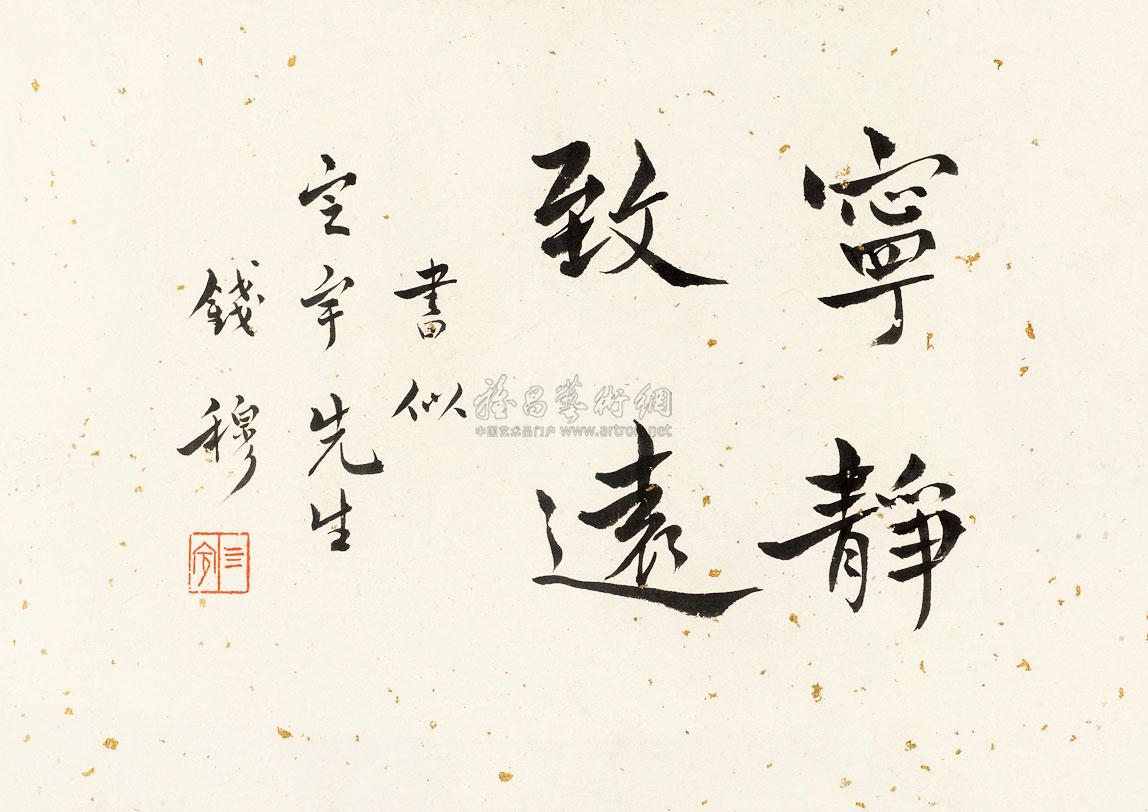 寧靜
致遠
書似
定宇先生
錢穆
雅昌藝術網
中国艺术品门户 www.artron.net